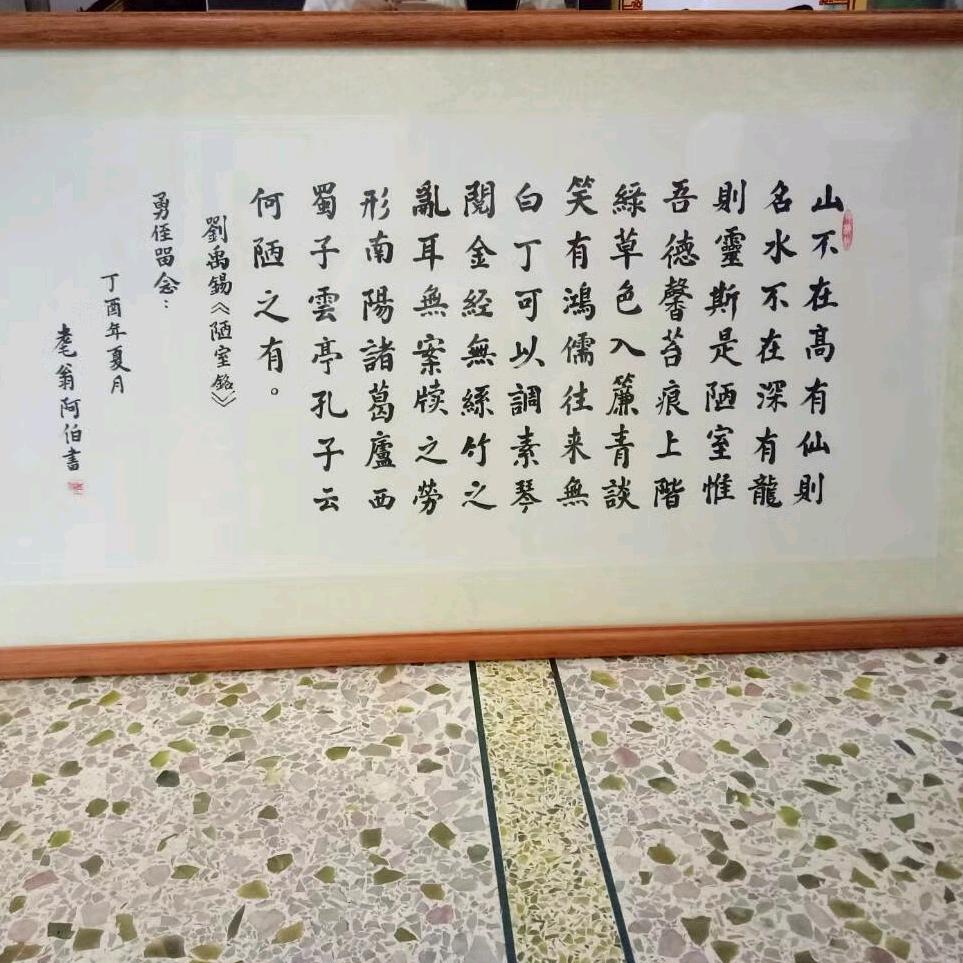 山不在高有仙則
名水不在深有龍
則靈斯是陋室惟
吾德馨苔痕上階
綠草色入簾青談
笑有鴻儒往来無
白丁可以調素琴
閱金經無絲竹之
亂耳無案牘之勞
形南陽諸葛廬西
蜀子雲亭孔子云
何陋之有。
劉禹錫《陋室銘》
勇侄留念：
丁酉年夏月
耄翁阿伯書